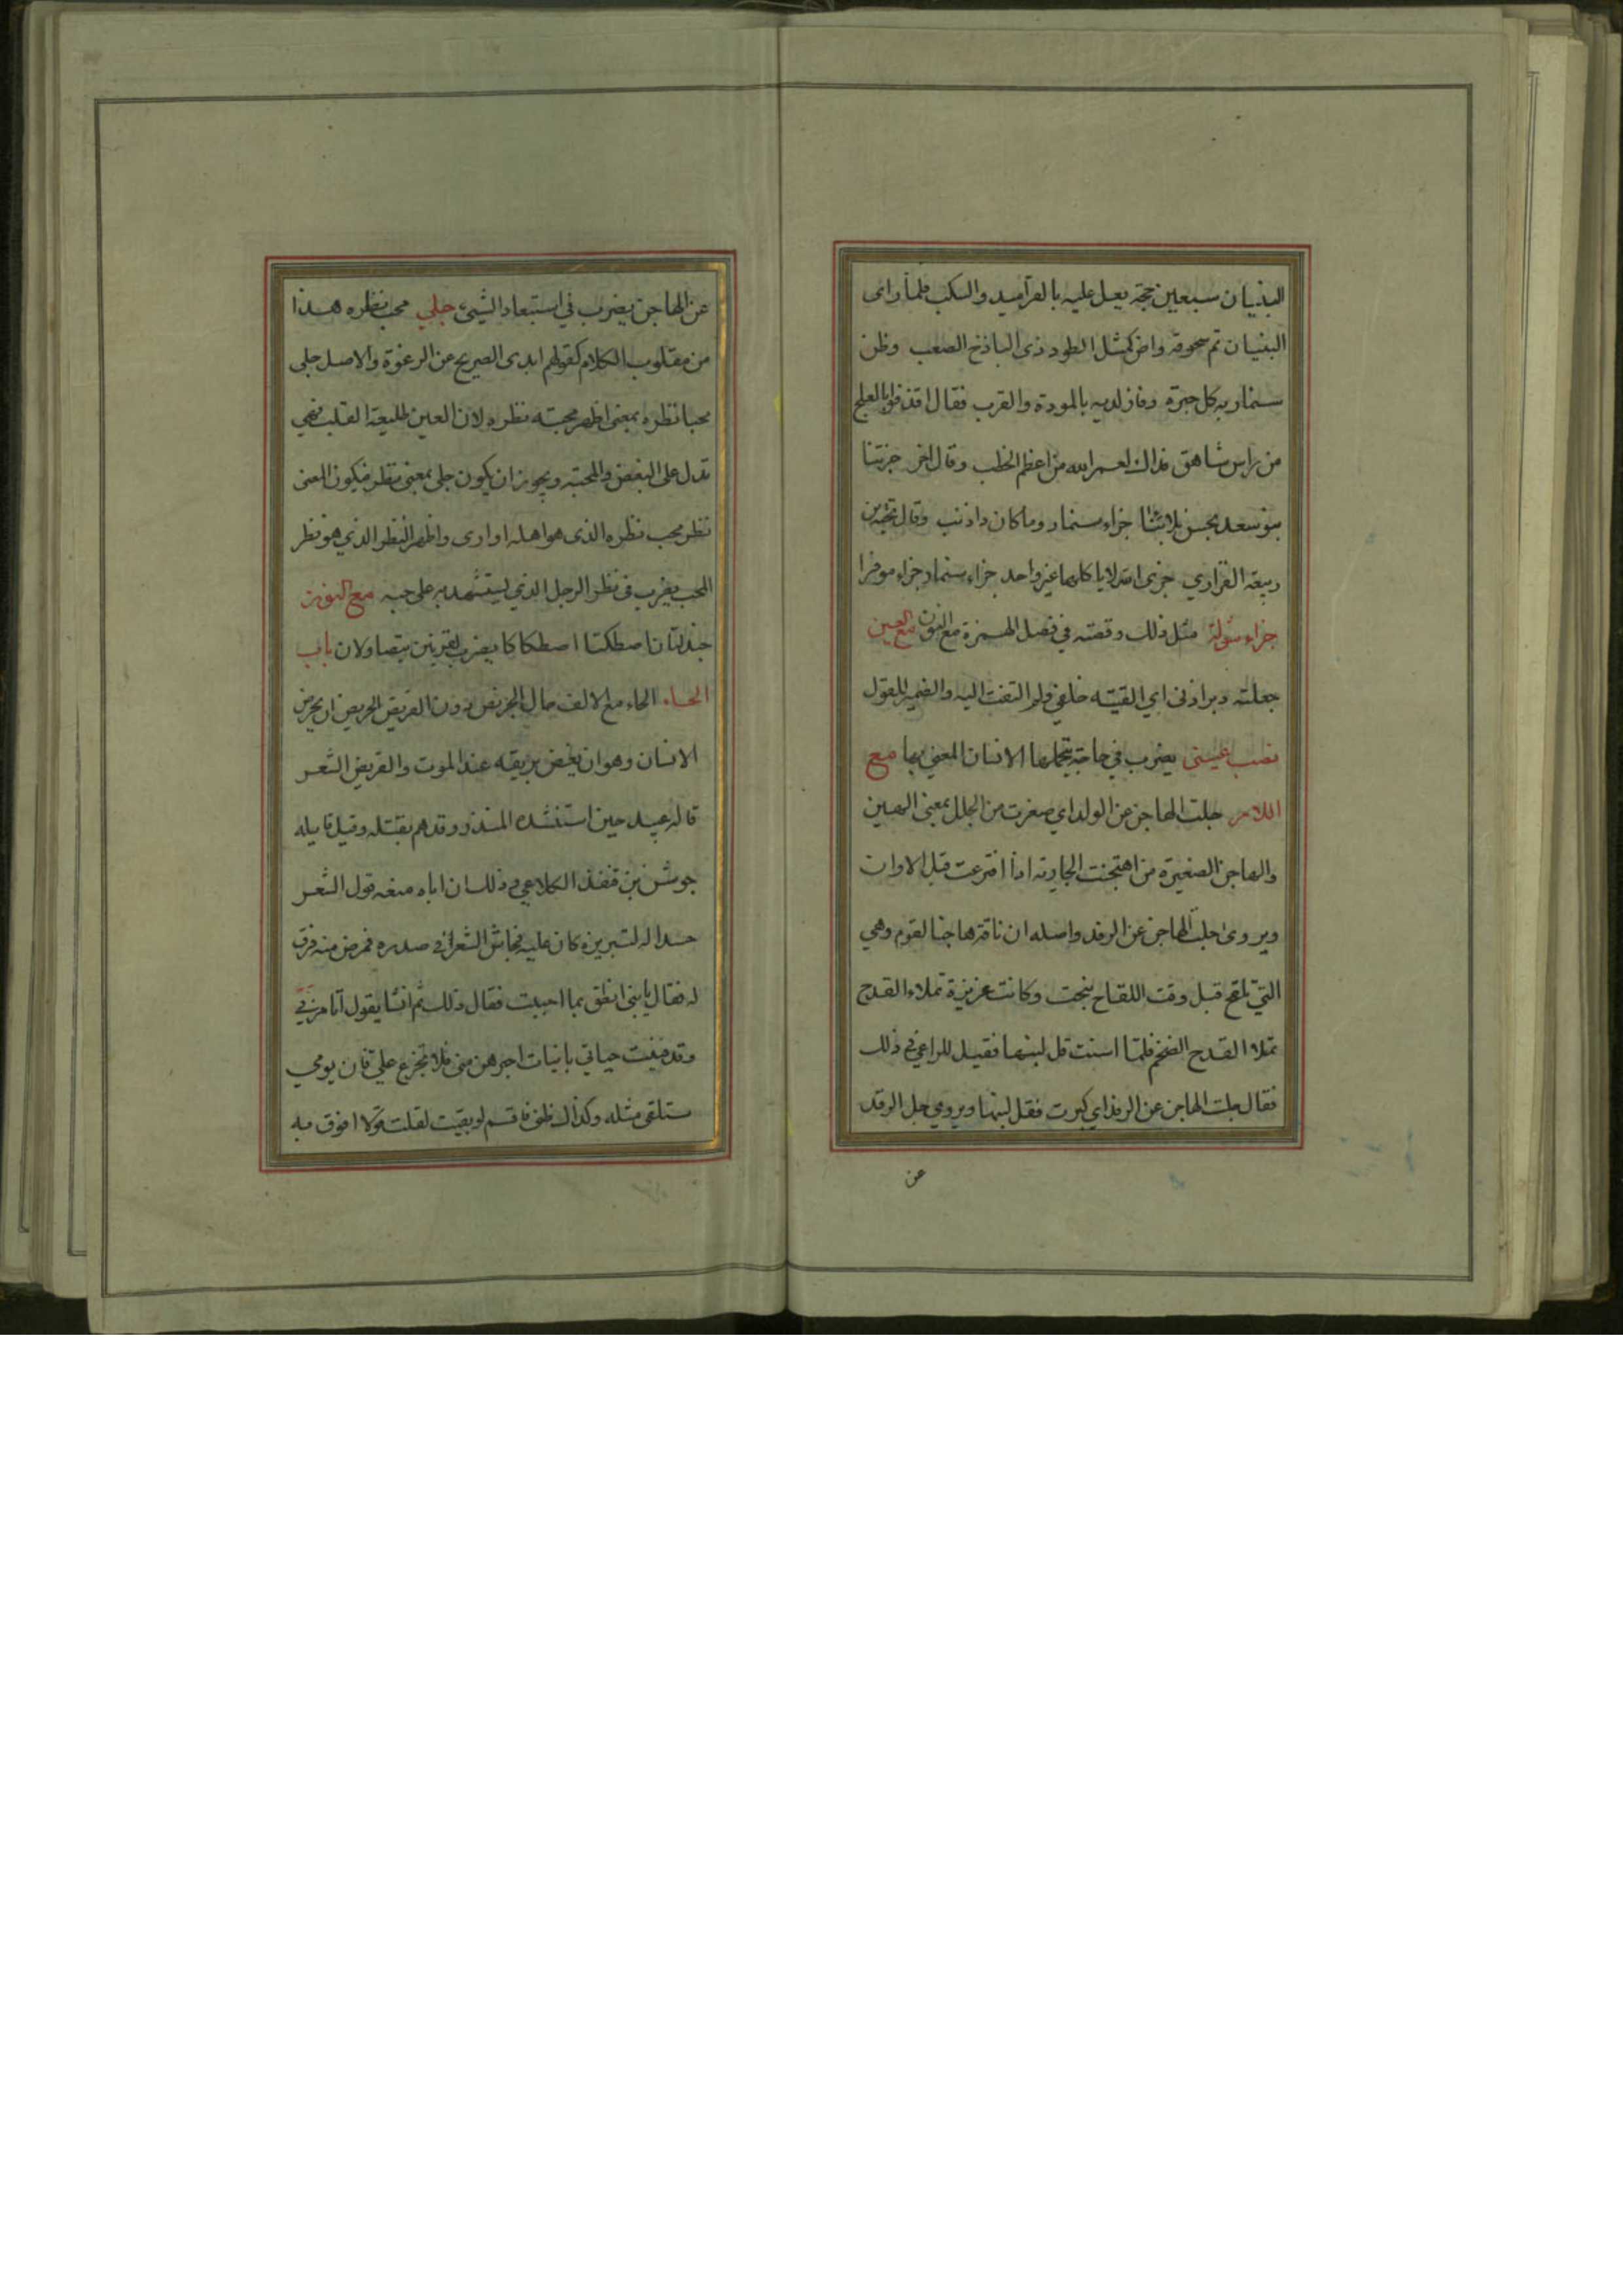 البنيان سبعين حجة يعل عليه بالقرآميد والسكب فلما رأى
البنيان تم سحوقه واض كمثل الطود ذى الباذخ الصعب وظن
سنمار به كل حبرة وفاز لديه بالمودة والقرب فقال اقذفوا بالعلج
من راس شاهق فذاك لعمر الله من اعظم الخطب وقال اخر جزتنا
بنو سعد بحسن بلائنا جزاء سنمار وما كان ذا ذنب وقال
ربيعة الفزاري جزى جزاء سنمار جزاء موفرا
جزاء شولة مثل ذلك وقصته في فصل الهمزة مع النون مع العين
جعلته دبر اذنى اي القيته خلفي ولم التفت اليه والضمير للقول
نصب عينى يضرب في حاجة يتحملها الانسان المعني بها مع
اللام جلت الهاجن عن الولد اي صغرت من الجلل بمعنى الهين
والهاجن الصغيرة من اهتجنت الجارية اذا افترعت قبل الاوان
ويروى جلت الهاجن عن الرفد واصله ان ناقة هاجنا لقوم وهي
التي تلقح قبل وقت اللقاح نتجت وكانت عزيزة تملاء القدح
تملا القدح الضخم فلما اسنت قل لبنها فقيل للراعي في ذلك
فقال جلت الهاجن عن الرفد اي كبرت فقل لبنها ويروي جل الرفد
عن
عن الهاجن يضرب في استبعاد الشيئ جلي محب نظره هذا
من مقلوب الكلام كقولهم ابدى الصريح عن الرغوة والاصل جلى
محبا نظره بمعنى اظهر محبته نظره لان العين طليعة القلب فهي
تدل على البغض والمحبة ويجوز ان يكون جلى بمعنى نظر فيكون المعنى
نظر محب نظره الذى هو اهله او ارى واظهر النظر الذي هو نظر
المحب يضرب في نظر الرجل الذي يستشهد به على حبه مع النون
جندلتان اصطكتا اصطكاكا يضرب لقرينين يتصاولان باب
الحاء الحاء مع الالف حال الجريض دون القريض الجريض ان يجرض
الانسان وهو ان يغض بريقه عند الموت والقريض الشعر
قاله عبيد حين استنشده المنذر وقد هم بقتله وقيل قايله
جوشن بن قنفذ الكلاعي وذلك ان اباه منعه قول الشعر
حسدا له لتبريزه كان عليه فجاش الشعر في صدره فمرض منه فرق
له فقال يا بنى انطق بما احببت فقال ذلك ثم انشا يقول
وقد فنيت حياتي بابيات احبرهن منى فلا تجزع علي فان يومي
ستلقى مثله وكذاك ظنى فاقسم لو بقيت لقلت قولا افوق به